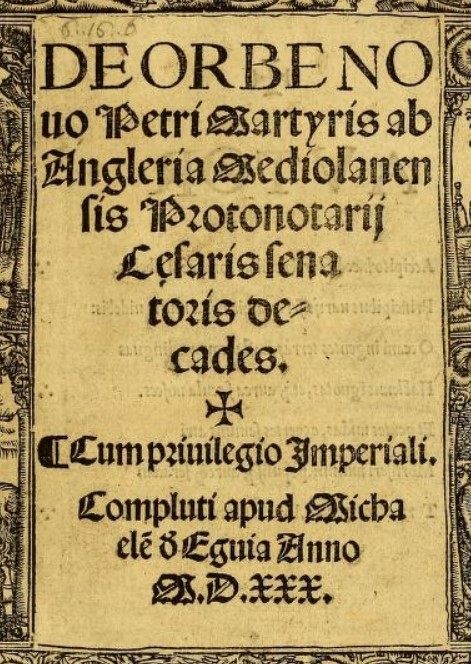 DE ORBE NO
uo Petri Martyris ab
Angleria Mediolanen
sis Protonotarij
Cęsaris sena
toris de⸗
cades.
✠
¶ Cum priuilegio Imperiali.
Compluti apud Micha
elē d̄ Eguia Anno
M.D.XXX.